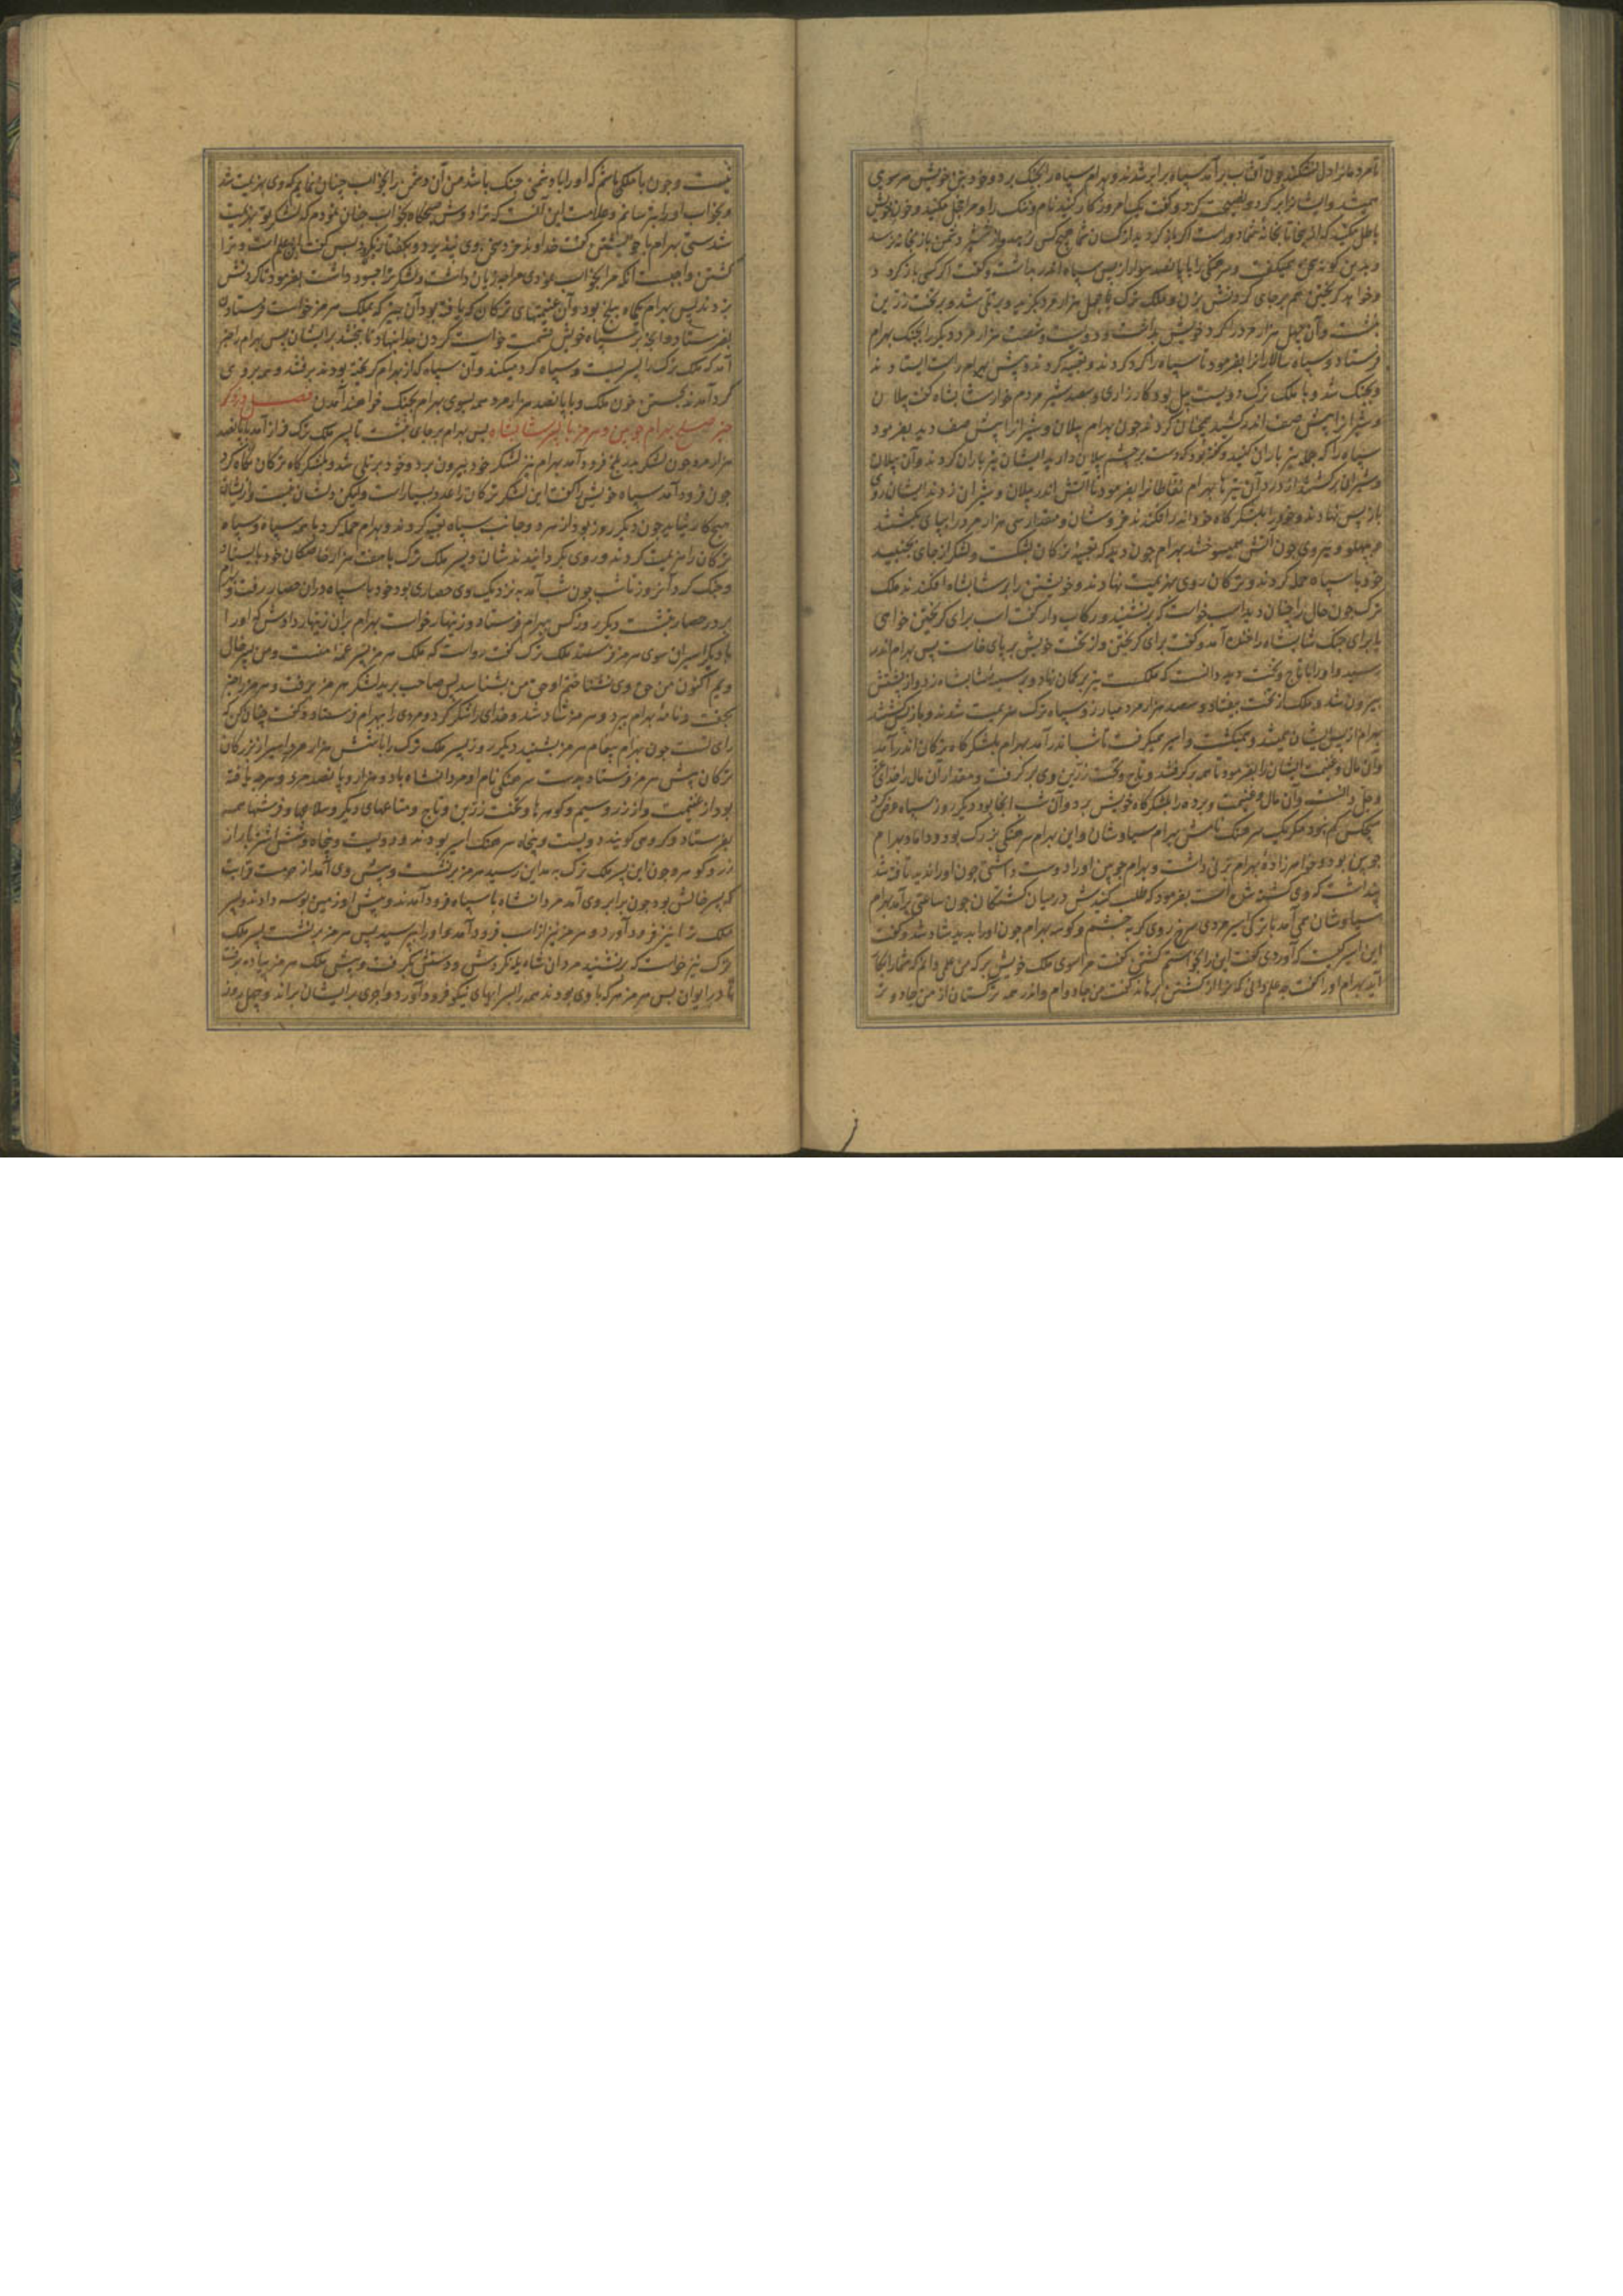 تا مرد مانرا دل نشکند چون آفتاب برآمد سپاه برابر شدند و بهرام سپاه را بجنگ برد و خود بتن خویش هر سوی
همیشد و ایشانرا پر کرد و نصیحت کرد و گفت یک امروز کار کنید نام و ننک را و مرا خجل مکنید و خون خویش
باطل مکنید که از اینجا تا بخانهٔ شما دور است
و بدین کونه همی میکفت و سرهنکی را با پانصد سوار از پس سپاه اندر بداشت و گفت اگر کسی باز کردد
و خواهد که بگریزد هم بر جای گردنش بزن و ملک ترک با چهل هزار مرد بگزید و بر تلی شد و بر تخت زرین
بنشست و آن چهل هزار مرد را گرد خویش بداشت و دویست و شصت هزار مرد دیگر را بجنگ بهرام
فرستاد و سپاه سالارانرا بفرمود تا سپاه را گرد کردند و تعبیه کردند و پیش بهرام راست ایستادند
و بجنگ شد و با ملک ترک دویست پیل بود کارزاری و سیصد شیر مردم خوار شابه شاه گفت پیلان
و شیرانرا پیش صف اندر کشید همچنان کردند چون بهرام پیلان و شیرانرا پیش صف دید بفرمود
سپاه را که جمله تیر باران کنید و گفته بود که دست بر چشم پیلان دارید ایشان تیر باران کردند و آن پیلان
و شیران برگشتند از درد آن تیرها بهرام نفاطانرا بفرمود تا آتش اندر پیلان و شیران زدند ایشان روی
باز پس نهادند و خود را بلشکرگاه خود اندر افکندند خروشان و مقدار سی هزار مرد را بپای بکشتند
چون آتش همیسوختند بهرام چون دید که تعبیهٔ ترکان بشکست و لشکر از جای بجنبید
خود با سپاه حمله کردند و ترکان روی بهزیمت نهادند و خویشتن را بر شابه شاه افکندند ملک
ترک چون حال را چنان دید اسب خواست که بر نشیند و رکاب دار گفت اسب برای گریختن خواهی
یا برای جنک شابه شاه را خنده آمد و گفت برای گریختن و از تخت خویش بر پای خاست پس بهرام اندر
رسید و او را با تاج و تخت دید دانست که ملکست تیر بر کمان نهاد و بر سینهٔ شابه شاه زد و از پشتش
بیرون شد و ملک از تخت بیفتاد و سیصد هزار مرد مبارز و سپاه ترک هزیمت شدند و باز پس کشتند
بهرام از پس ایشان همیشد و همیکشت و اسیر همیگرفت تا شب اندر آمد بهرام بلشکرگاه ترکان اندر آمد
و آن مال و غنیمت ایشان را بفرمود تا همه برگرفتند و تاج و تخت زرین وی برگرفت و مقدار آن مال را خدای عز
و جل دانست و آن مال و غنیمت و برده را بلشکرگاه خویش برد و آن شب آنجا بود دیگر روز سپاه عرض کرد
هیچکس کم نبود مگر یک سرهنگ نامش بهرام سیاوشان و این بهرام سرهنگی بزرگ بود و داماد بهرام
چوبین بود و خواهرزادهٔ بهرام بزنی داشت و بهرام چوبین او را دوست داشتی چون او را ندید تافته شد
پنداشت که وی کشته شده است بفرمود که طلب کنیدش در میان کشتگان چون ساعتی برآمد بهرام
سیاوشان همی آمد با ترکی اسیر مردی سرخ روی گربه چشم و کوسه بهرام چون او را بدید شاد شد و گفت
این اسیر کیست که آوردی گفت این را بخواستم کشتن گفت مرا سوی ملک خویش بر که من علمی دانم که شما را بکار
آید بهرام او را گفت چه علم دانی که ترا از کشتن برهاند گفت من جادوام و اندر همه ترکستان از من جادو تر
نیست و چون با ملکی باشم که او را با دشمنی جنگ باشد من آن دشمن را بخواب چنان نمایم که وی هزیمت شد
و بخواب او را بترسانم و علامت این آنست که ترا دوش صبحگاه بخواب چنان نمودم که لشکر تو بهزیمت
شدستی بهرام با خویشتن گفت
کشتن واجبست آنکه مرا بخواب نمودی مرا چه زیان داشت و لشکر ترا چه سود داشت بفرمود تا گردنش
بزدند پس بهرام یکماه ببلخ بود و آن غنیمتهای ترکان که یافته بود آن چیز که ملک هرمز خواست فرستادن
بفرستاد و آنچه بر سپاه خویش قسمت خواست کردن جدا بنهاد تا ببخشد بر ایشان پس بهرام را خبر
آمد که ملک ترک را پسریست و سپاه گرد میکند و آن سپاه که از بهرام گریخته بودند برفتند و همه بر وی
گرد آمدند بکین خون ملک و با پانصد هزار مرد همه بسوی بهرام بجنگ خواهند آمدن فصل در ذکر
خبر صلح بهرام چوبین و هرمز با پسر شابه شاه پس بهرام بر جای بنشست تا پسر ملک ترک فراز آمد با پانصد
هزار مرد چون لشکر بدر بلخ فرود آمد بهرام نیز لشکر خود بیرون برد و خود بر تلی شد و بلشکرگاه ترکان نگاه کرد
چون فرود آمد سپاه خویش را گفت این لشکر ترکان را عدد بسیار است ولیکن دلشان نیست و از ایشان
هیچ کار نیاید چون دیگر روز بود از هر دو جانب سپاه تعبیه کردند و بهرام حمله کرد با همه سپاه و سپاه
ترکان را هزیمت کردند و روی بگردانیدندشان و پسر ملک ترک با هفت هزار خاصگان خود بایستاد
و جنگ کرد آنروز تا شب چون شب آمد به نزدیک وی حصاری بود خود با سپاه در آن حصار رفت و بهرام
بر در حصار بنشست دیگر روز کس ببهرام فرستاد و زنهار خواست بهرام بر آن زنهار دادش که او را
با دیگر اسیران سوی هرمز فرستد ملک ترک گفت رواست که ملک هرمز پسر عمهٔ منست و من پسر خال
ویم اکنون من حق وی نشناختم او حق من بشناسد پس صاحب برید لشکر هرمز برفت و هرمز را خبر
بگفت و نامهٔ بهرام ببرد و هرمز شاد شد و خدای را شکر کرد و مردی را ببهرام فرستاد و گفت چنان کن که
رای تست چون بهرام پیغام هرمز بشنید دیگر روز پسر ملک ترک را با شش هزار مرد اسیر از بزرگان
ترکان پیش هرمز فرستاد بدست سرهنگی نام او مردانشاه با دو هزار و پانصد مرد و هر چه یافته
بود از غنیمت و از زر و سیم و گوهرها و تخت زرین و تاج و متاعهای دیگر و سلاحها و فرشها همه
بفرستاد و گروهی گویند دویست و پنجاه سرهنگ اسیر بودند و دویست و پنجاه و شش اشتر بار از
زر و گوهر و چون این پسر ملک ترک به مداین رسید هرمز برنشست و پیش وی آمد از حرمت قرابت
که پسر خالش بود چون برابر وی آمد مردانشاه با سپاه فرود آمدند و پیش او زمین بوسه دادند و پسر
ملک را نیز فرود آورد و هرمز نیز از اسب فرود آمد و او را بپرسید پس هرمز برنشست پسر ملک
ترک نیز خواست که برنشیند مردان شاه یله نکردش و دستش بگرفت و پیش ملک هرمز پیاده برفت
تا در ایوان پس هرمز هر که با وی بودند همه را بسراهای نیکو فرود آورد و اجری بر ایشان براند و چهل روز